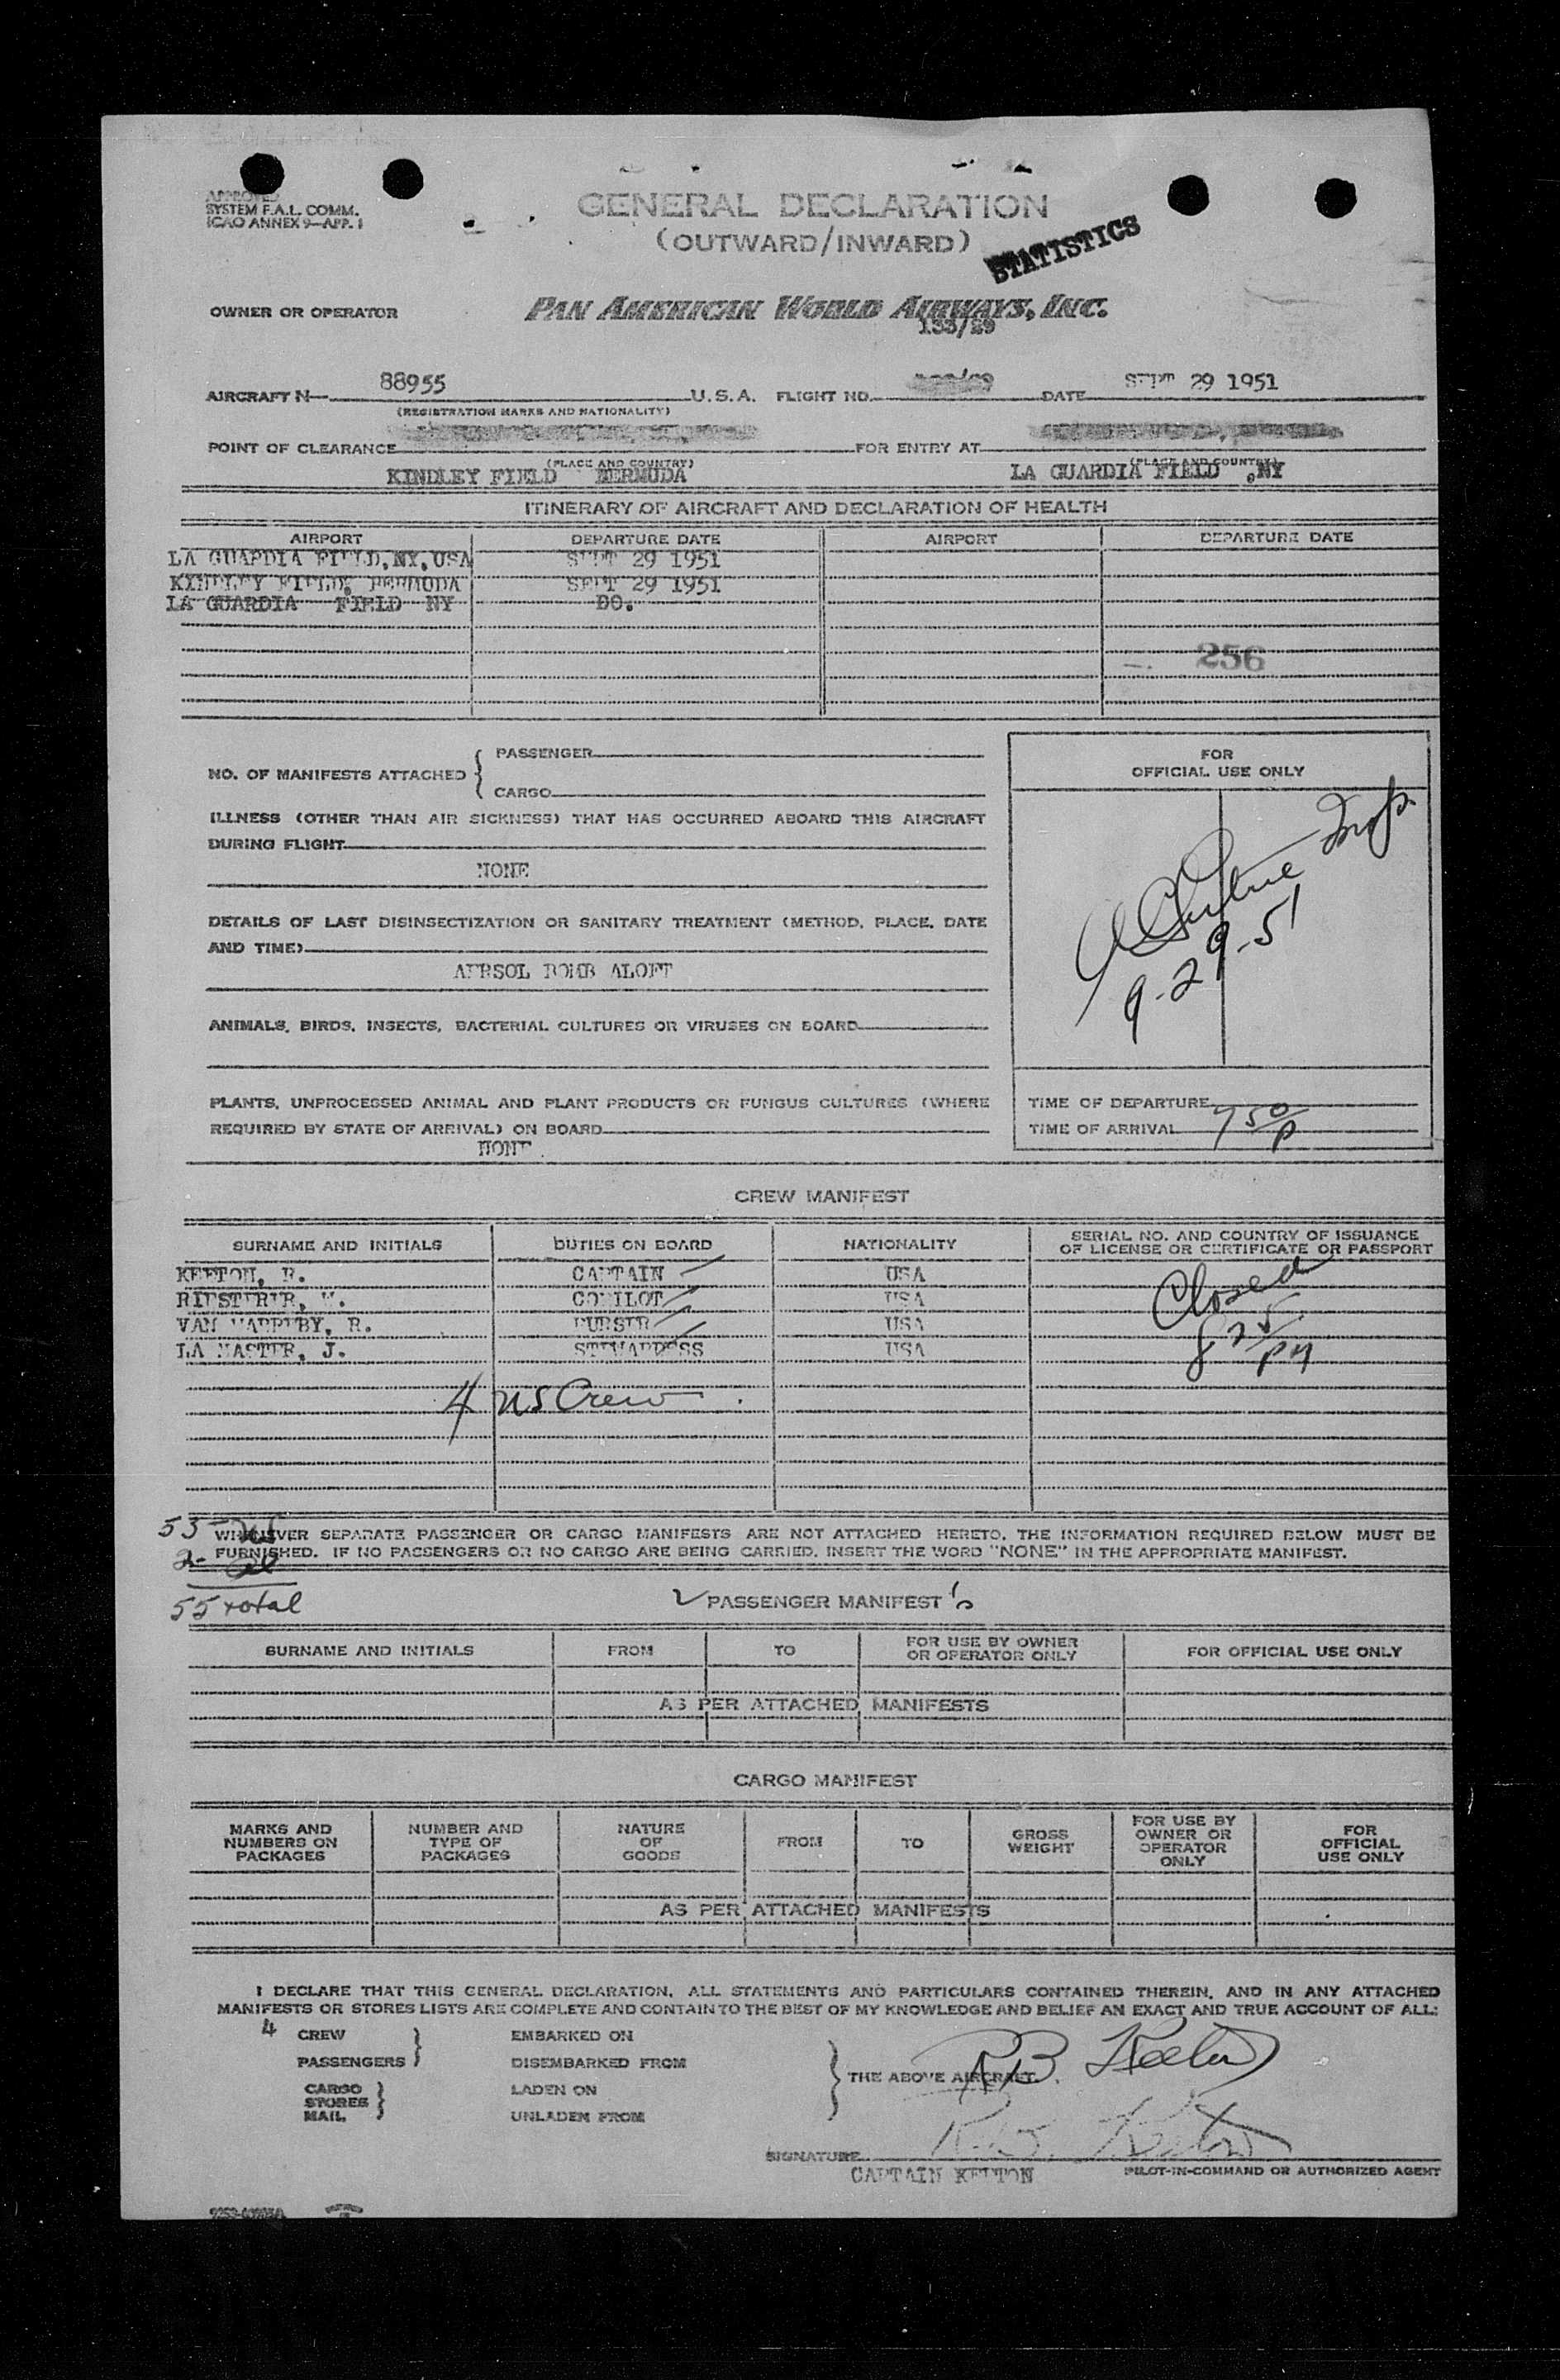 APPROVED
SYSTEM F.A.L. COMM.
ICAO ANNEX 9—APP. 1
GENERAL DECLARATION
(OUTWARD/INWARD)
STATISTICS
OWNER OR OPERATOR PAN AMERICAN WORLD AIRWAYS, INC.
133/29
AIRCRAFT N— 88955 U.S.A. FLIGHT NO. DATE SEPT 29 1951
(REGISTRATION MARKS AND NATIONALITY)
POINT OF CLEARANCE FOR ENTRY AT
(PLACE AND COUNTRY) (PLACE AND COUNTRY)
KINDLEY FIELD BERMUDA LA GUARDIA FIELD ,NY
ITINERARY OF AIRCRAFT AND DECLARATION OF HEALTH
AIRPORT DEPARTURE DATE AIRPORT DEPARTURE DATE
LA GUARDIA FIELD,NY,USA SEPT 29 1951
KINDLEY FIELD, BERMUDA SEPT 29 1951
LA GUARDIA FIELD NY DO.
256
NO. OF MANIFESTS ATTACHED { PASSENGER
CARGO
FOR
OFFICIAL USE ONLY
ILLNESS (OTHER THAN AIR SICKNESS) THAT HAS OCCURRED ABOARD THIS AIRCRAFT
DURING FLIGHT
NONE
DETAILS OF LAST DISINSECTIZATION OR SANITARY TREATMENT (METHOD, PLACE, DATE
AND TIME)
AERSOL BOMB ALOFT
9-29-51
ANIMALS, BIRDS, INSECTS, BACTERIAL CULTURES OR VIRUSES ON BOARD
PLANTS, UNPROCESSED ANIMAL AND PLANT PRODUCTS OR FUNGUS CULTURES (WHERE
REQUIRED BY STATE OF ARRIVAL) ON BOARD
NONE.
TIME OF DEPARTURE
TIME OF ARRIVAL 750 P
CREW MANIFEST
SURNAME AND INITIALS DUTIES ON BOARD NATIONALITY SERIAL NO. AND COUNTRY OF ISSUANCE
OF LICENSE OR CERTIFICATE OR PASSPORT
KEETON, R. CAPTAIN USA
RIESTERER, W. COPILOT USA
VAN R. PURSER USA
LA MASTER, J. STEWARDESS USA
Closed
825 PM
4 US Crew
53 - US
2 -
55 total
WHENEVER SEPARATE PASSENGER OR CARGO MANIFESTS ARE NOT ATTACHED HERETO, THE INFORMATION REQUIRED BELOW MUST BE
FURNISHED. IF NO PASSENGERS OR NO CARGO ARE BEING CARRIED, INSERT THE WORD "NONE" IN THE APPROPRIATE MANIFEST.
PASSENGER MANIFEST
SURNAME AND INITIALS FROM TO FOR USE BY OWNER
OR OPERATOR ONLY FOR OFFICIAL USE ONLY
AS PER ATTACHED MANIFESTS
CARGO MANIFEST
MARKS AND
NUMBERS ON
PACKAGES
NUMBER AND
TYPE OF
PACKAGES
NATURE
OF
GOODS
FROM
TO
GROSS
WEIGHT
FOR USE BY
OWNER OR
OPERATOR
ONLY
FOR
OFFICIAL
USE ONLY
AS PER ATTACHED MANIFESTS
I DECLARE THAT THIS GENERAL DECLARATION, ALL STATEMENTS AND PARTICULARS CONTAINED THEREIN, AND IN ANY ATTACHED
MANIFESTS OR STORES LISTS ARE COMPLETE AND CONTAIN TO THE BEST OF MY KNOWLEDGE AND BELIEF AN EXACT AND TRUE ACCOUNT OF ALL:
4 CREW EMBARKED ON
PASSENGERS DISEMBARKED FROM
CARGO LADEN ON
STORES
MAIL UNLADEN FROM
THE ABOVE AIRCRAFT.
R B Keeton
SIGNATURE R.B. Keeton
CAPTAIN KEETON PILOT-IN-COMMAND OR AUTHORIZED AGENT